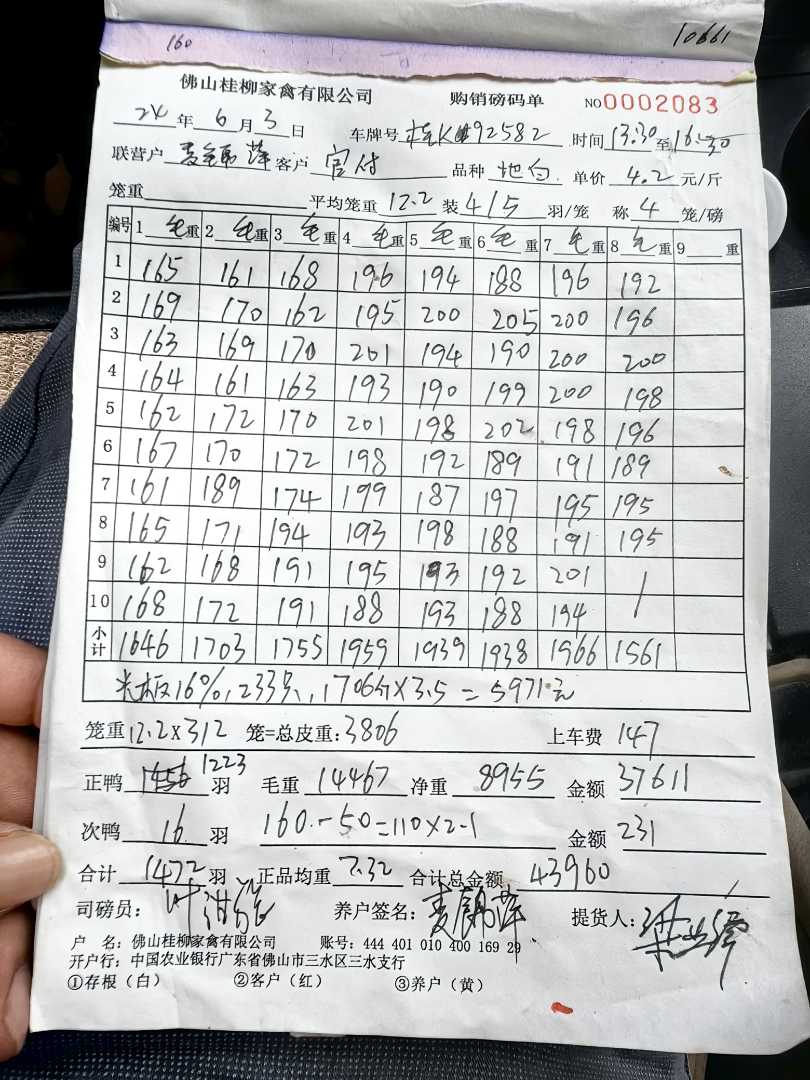 160
10661
佛山桂柳家禽有限公司 购销磅码单 NO0002083
24年6月3日 车牌号 桂K92582 时间13:30至16:30
联营户 客户 官付 品种 地白 单价 4.2 元/斤
笼重 平均笼重 12.2 装 4/5 羽/笼 称 4 笼/磅
编号 1 毛重 2 毛重 3 毛重 4 毛重 5 毛重 6 毛重 7 毛重 8 毛重 9 重
1 165 161 168 196 194 188 196 192
2 169 170 162 195 200 205 200 196
3 163 169 170 201 194 190 200 200
4 164 161 163 193 190 199 200 198
5 162 172 170 201 198 202 198 196
6 167 170 172 198 192 189 191 189
7 161 189 174 199 187 197 195 195
8 165 171 194 193 198 188 191 195
9 162 168 191 195 193 192 201 /
10 168 172 191 188 193 188 194 /
小计 1646 1703 1755 1959 1939 1938 1966 1561
米板16%,233只,1706斤×3.5=5971元
笼重 12.2×312 笼=总皮重:3806 上车费 147
正鸭 1223 羽 毛重 14467 净重 8955 金额 37611
次鸭 16 羽 160-50=110×2.1 金额 231
合计 1472 羽 正品均重 7.32 合计总金额 43960
司磅员: 养户签名: 提货人:
户 名:佛山桂柳家禽有限公司 账号:444 401 010 400 169 29
开户行:中国农业银行广东省佛山市三水区三水支行
①存根(白) ②客户(红) ③养户(黄)